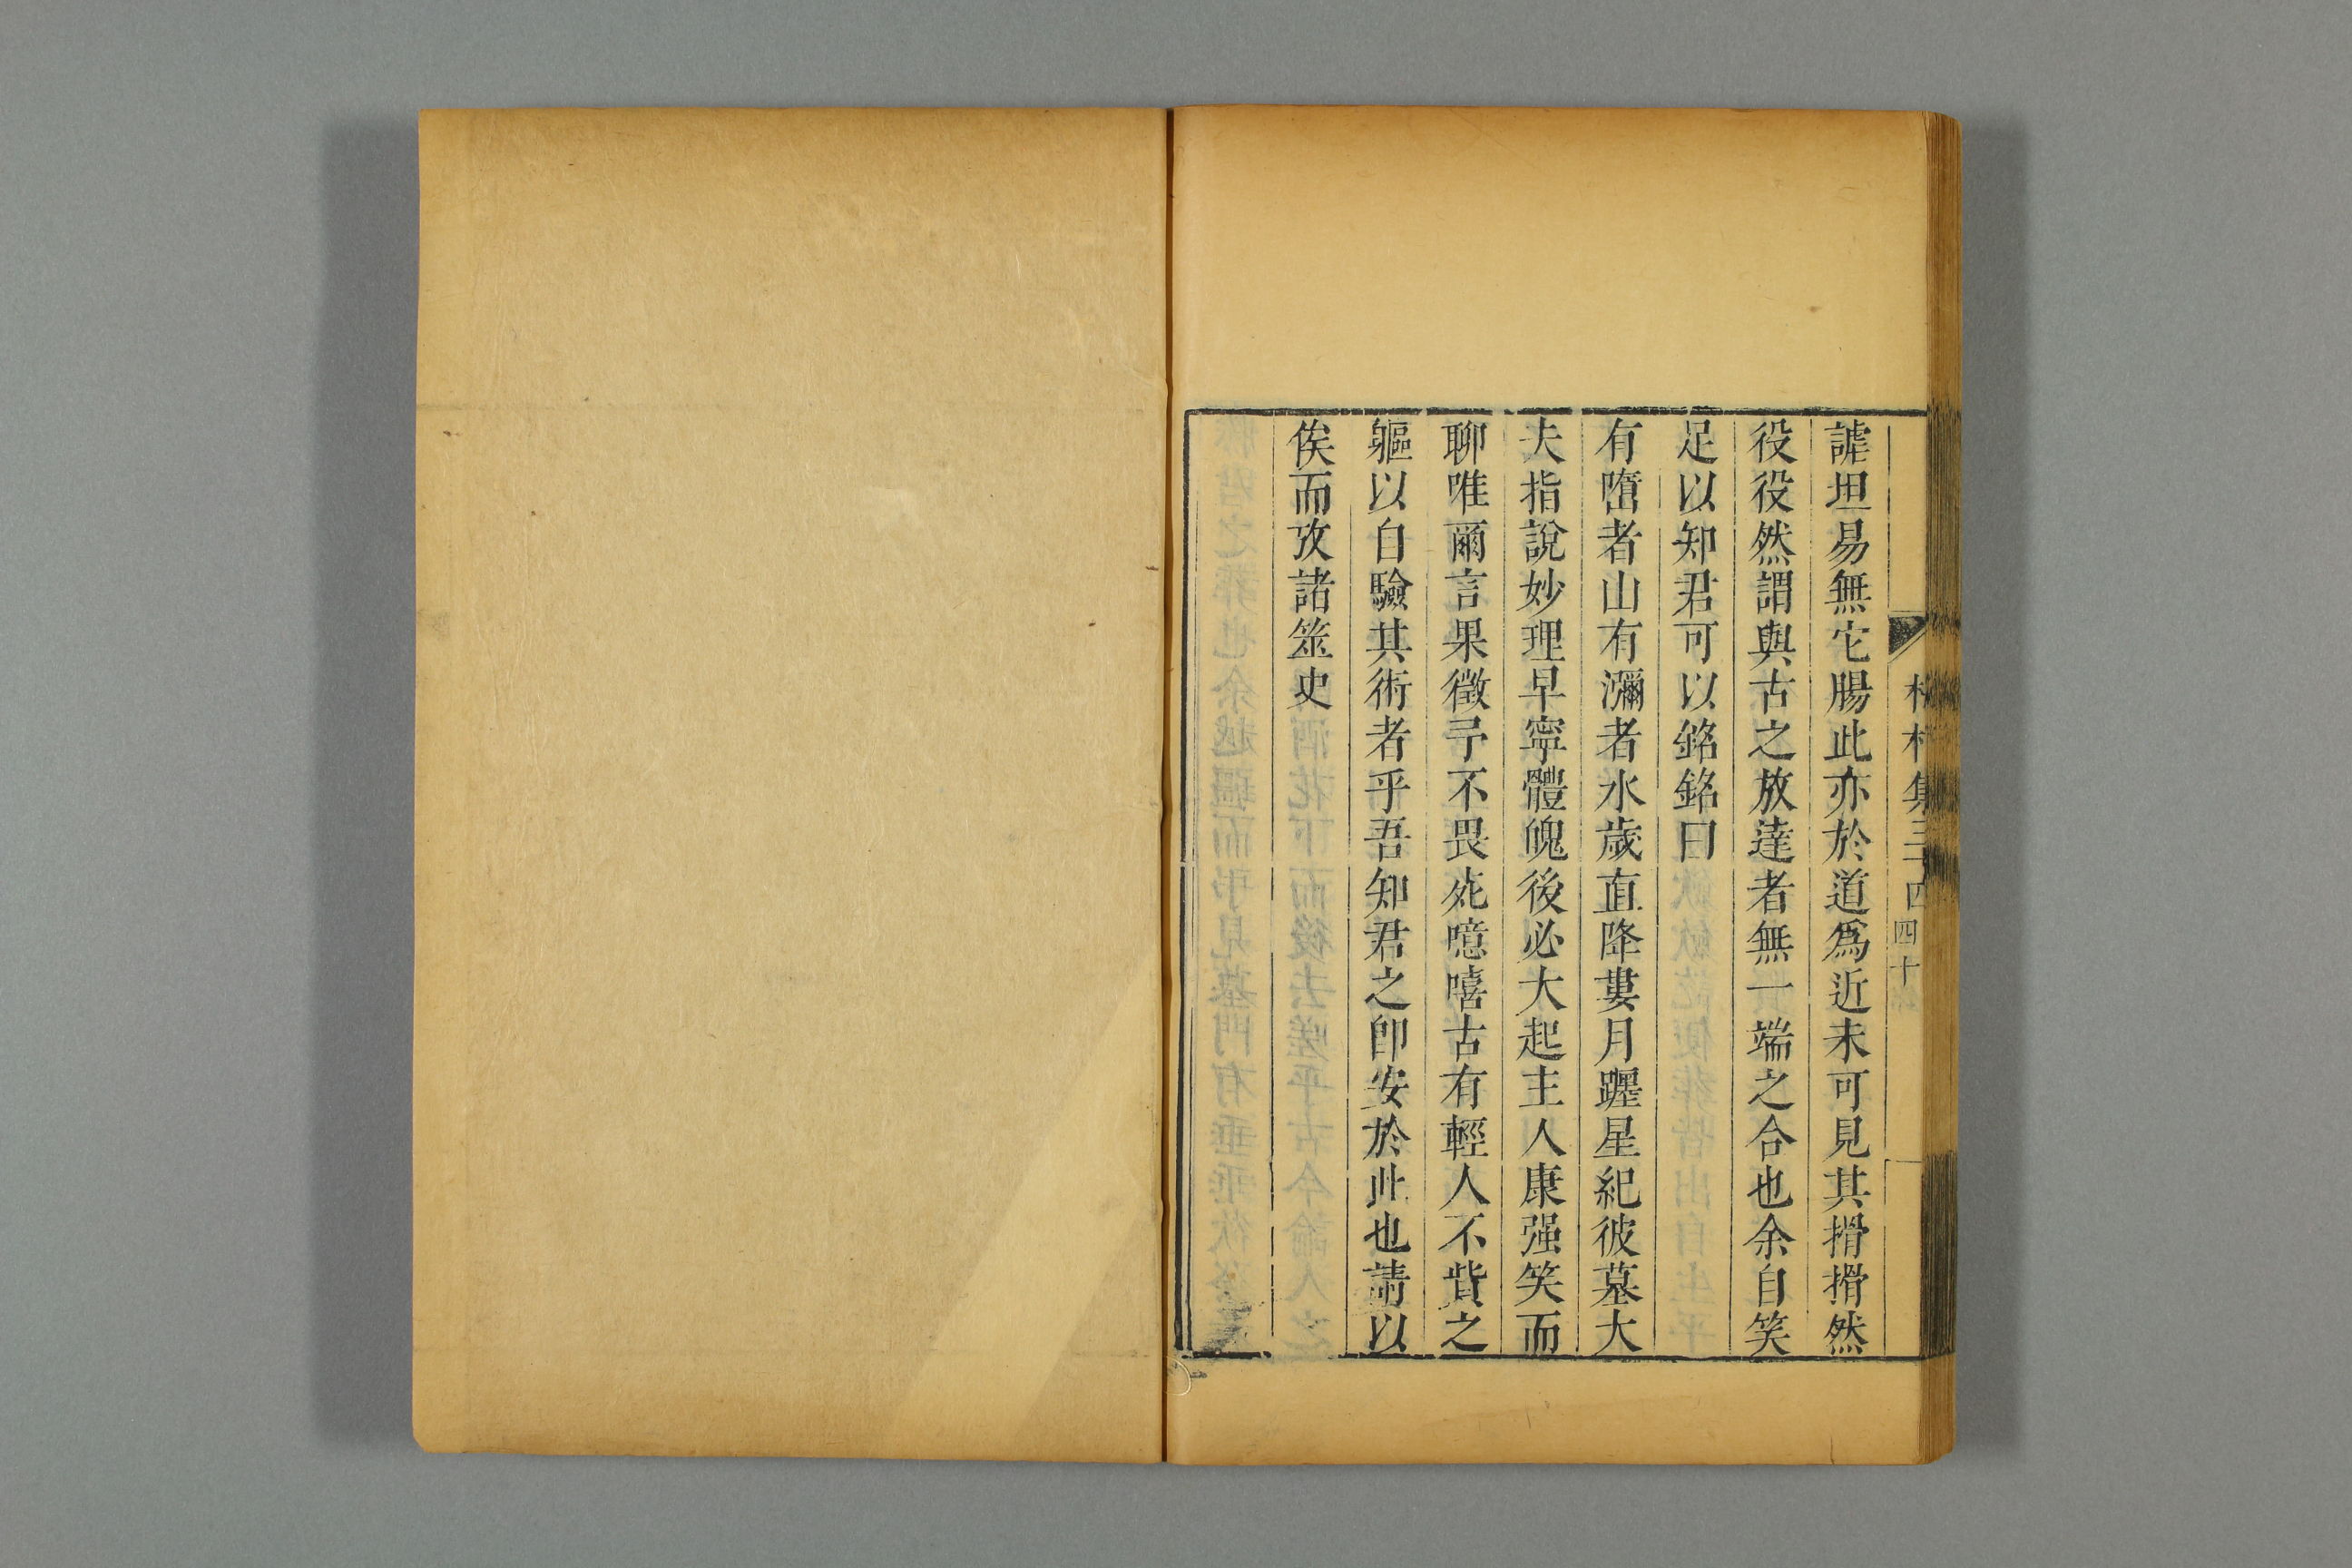 謔坦易無它腸此亦於道爲近未可見其搰搰然
役役然謂與古之放達者無一端之合也余自笑
足以知君可以銘銘曰
有嶞者山有瀰者水歲直降婁月躔星紀彼墓大
夫指說妙理早寧體魄後必大起主人康强笑而
聊唯爾言果徵予不畏死噫嘻古有輕人不貲之
軀以自驗其術者乎吾知君之卽安於此也請以
俟而攷諸筮史
村集三十四
四十